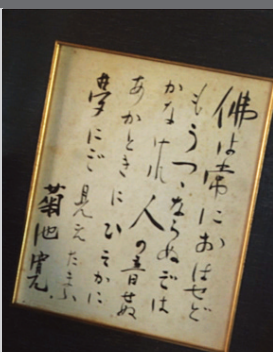 佛は常におはせど
もうつゝならぬごは
かなけれ人の音せぬ
あかときにひそかに
夢にご見えたまふ
菊池寛